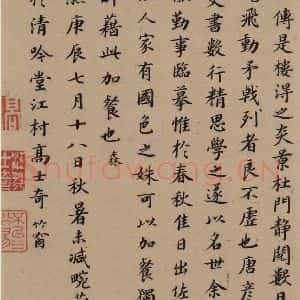 傳是樓得之杜門靜閣歎
飛動矛戟列者良不虛也唐彥
文書數行精思學之遂以名世余
勤事臨摹惟於春秋佳日出佐
人家有國色之姝可以加餐獨
藉此加餐也
熙庚辰七月十八日秋暑未減晚
於清吟堂江村高士奇 竹窗
shufawang.CN